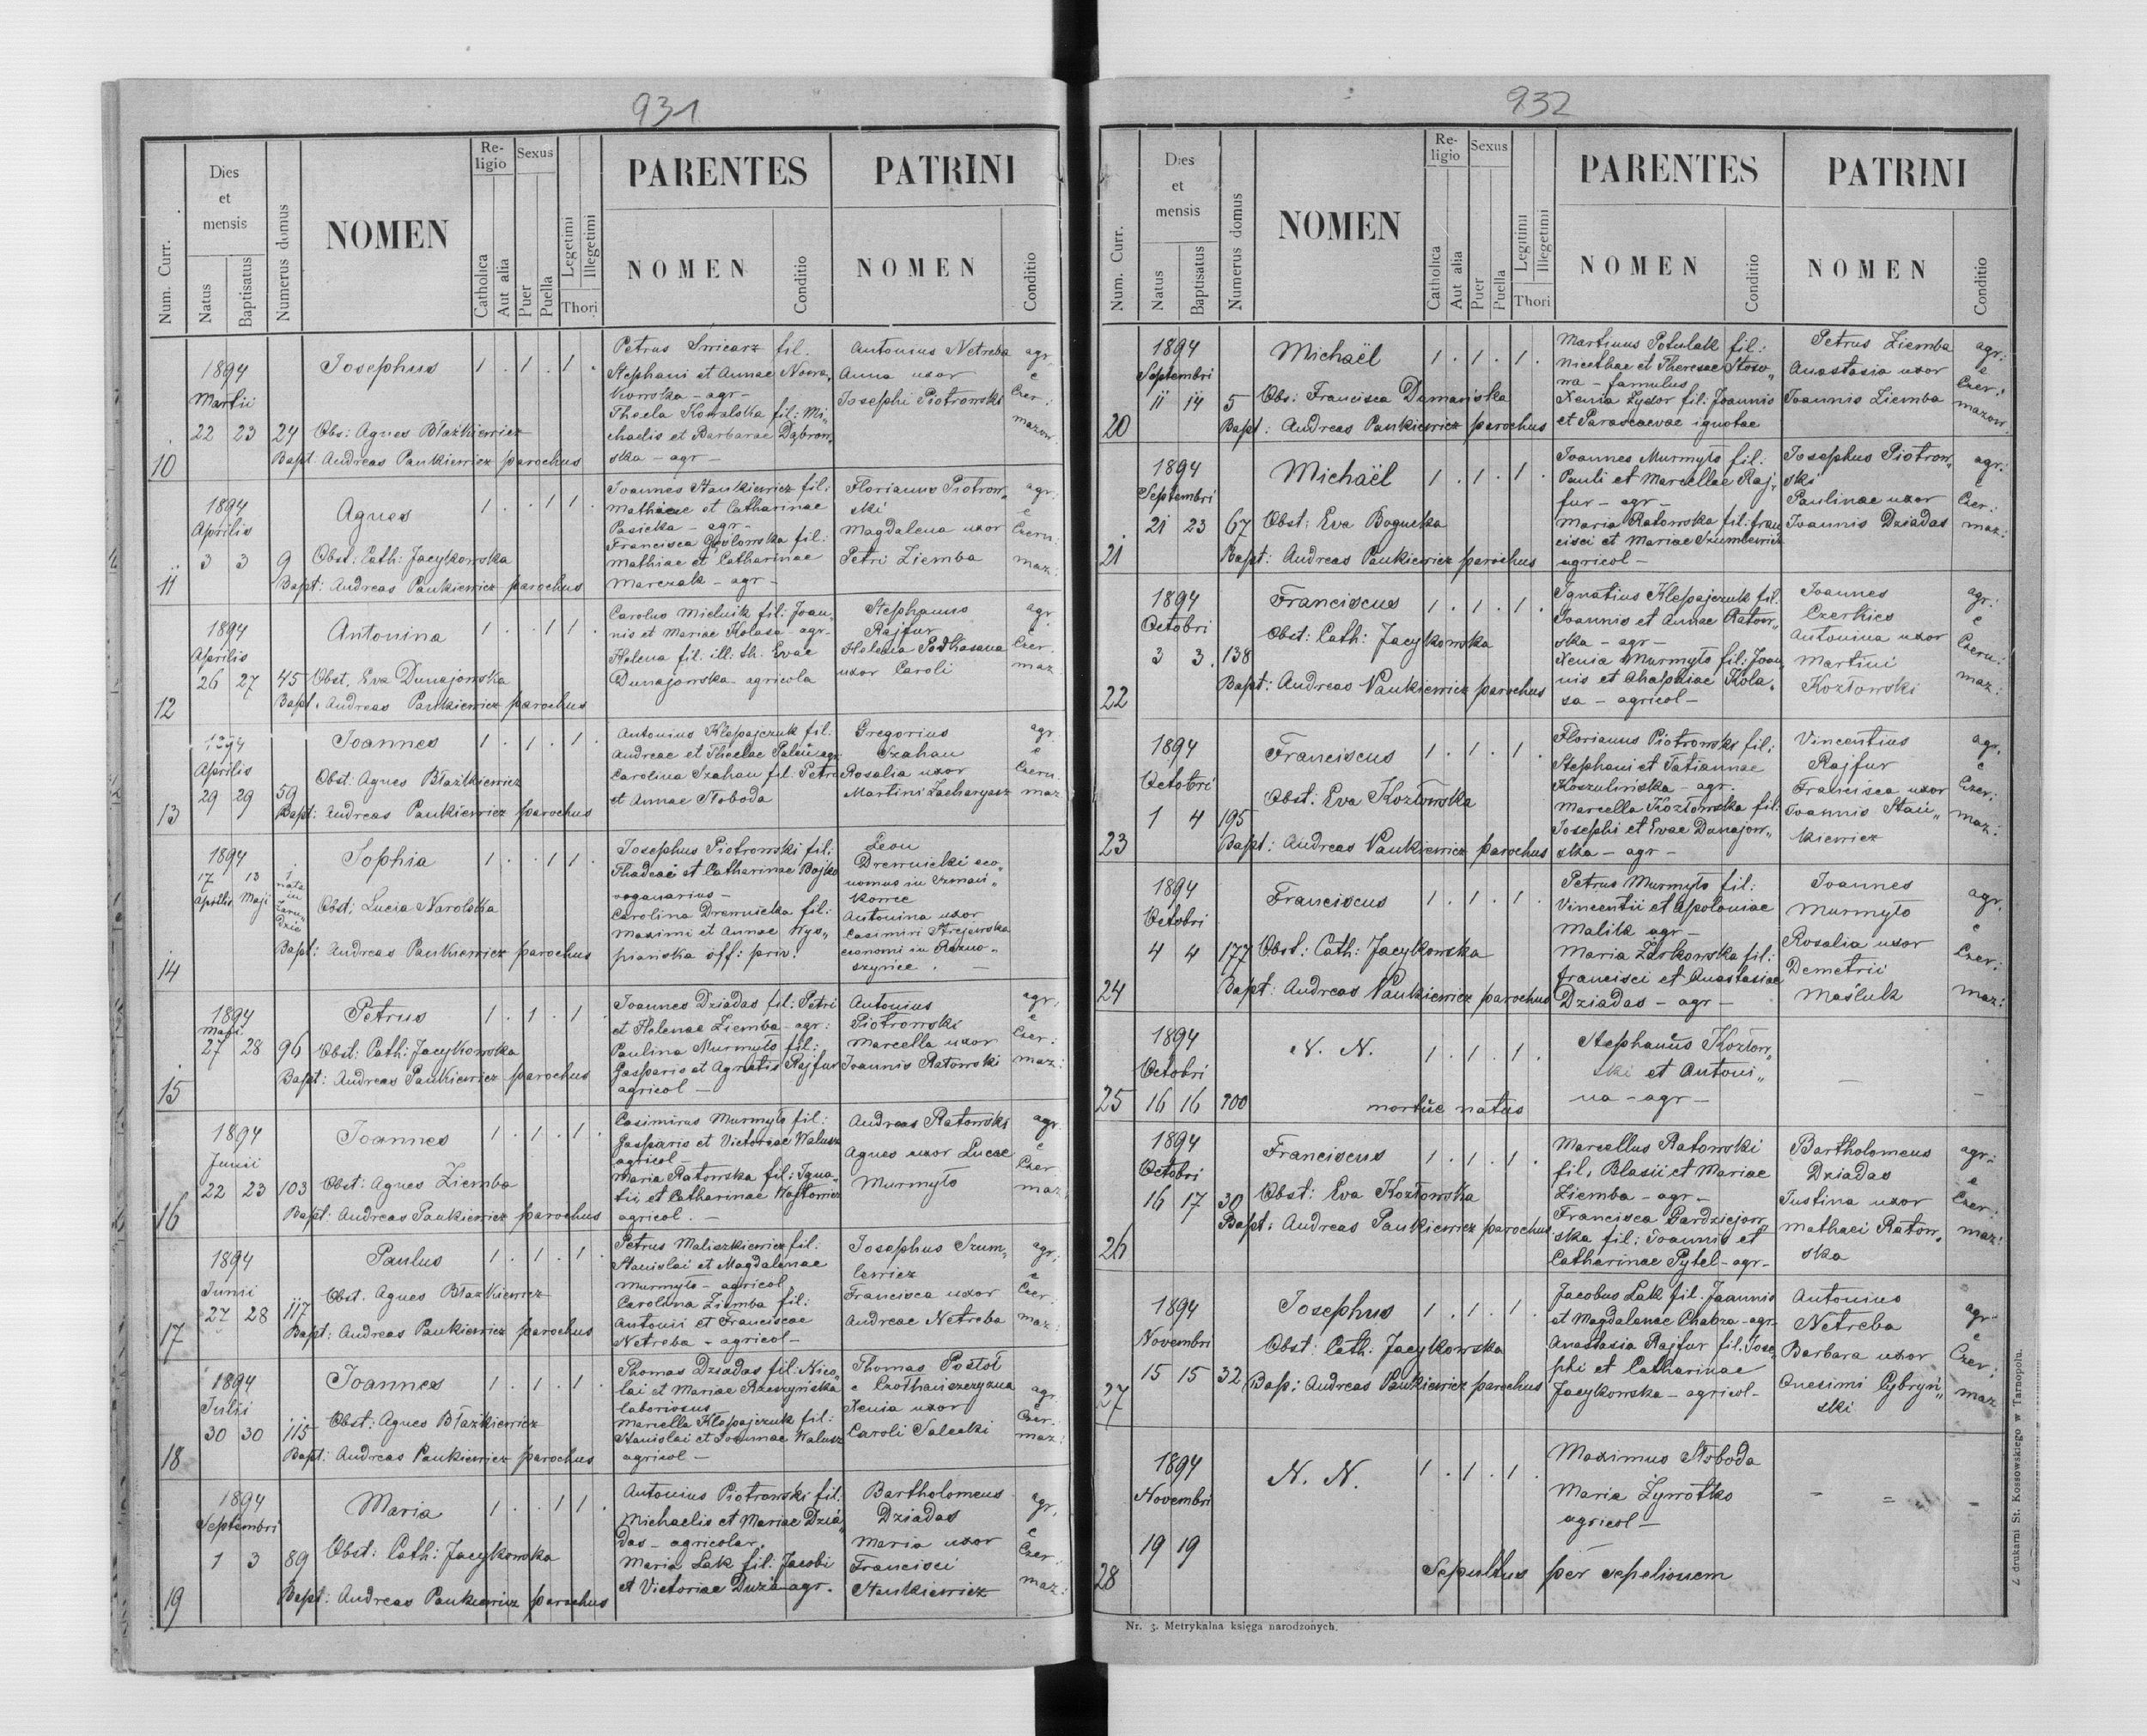 931
Num. Curr.
Dies
et
mensis
Natus
Baptisatus
Numerus domus
NOMEN
Re-
ligio
Catholica
Aut alia
Sexus
Puer
Puella
Legetimi
Illegetimi
Thori
PARENTES
NOMEN
Conditio
PATRINI
NOMEN
Conditio
10
1894
Martii
22 23 24
Josephus
Obs: Agnes Błażkiewicz
Bapt. Andreas Pankiewicz parochus
1 . 1 . 1 .
Petrus fil.
Stephani et Annae
agr
Thecla Kowalska fil: Mi„
chaelis et Barbarae Dąbrow„
ska - agr -
Antonius Netreba
Anna uxor
Josephi Piotrowski
agr.
e
Czer:
mazow.
11
1894
Aprilis
3 3 9
Agnes
Obst: Cath: Jacykowska
Bapt: Andreas Pankiewicz parochus
1 . . 1 1 .
Joannes Stankiewicz fil:
Mathiae et Catharinae
Pasicka - agr -
Francisca fil:
Mathiae et Catharinae
Marczak - agr -
Florianus Piotrow„
ski
Magdalena uxor
Petri Ziemba
agr:
e
Czern:
maz:
12
1894
Aprilis
26 27 45
Antonina
Obst. Eva Dunajowska
Bapt. Andreas Pankiewicz parochus
1 . . 1 1 .
Carolus Mielnik fil: Joan„
nis et Mariae Kolasa - agr -
Helena fil. ill: th. Evae
Dunajowska - agricola
Stephanus
Rajfur
Helena Podhasana
uxor Caroli
agr.
Czer.
maz
13
1894
Aprilis
29 29 59
Joannes
Obst: Agnes Błażkiewicz
Bapt: Andreas Pankiewicz parochus
1 . 1 . 1 .
Antonius Klepajczuk fil:
Andreae et Theclae
Carolina Szahan fil. Petri
et Annae Słoboda
Gregorius
Szahan
Rosalia uxor
Martini Zacharyasz
agr.
e
Czern.
maz
14
1894
17 13
Aprilis Maji
1
nata
in
Zaru„
dzie
Sophia
Obst: Lucia Narolska
Bapt: Andreas Pankiewicz parochus
1 . . 1 1 .
Josephus Piotrowski fil:
Thadeai et Catharinae Bojko
Carolina Drewnicka fil:
Maximi et Annae Wys„
piańska off: priv:
Leon
Drewnicki eco„
nomus in
Antonina uxor
Casimiri
economi in Rozno„
szynce . -
15
1894
Maji
27 28 96
Petrus
Obst: Cath: Jacykowska
Bapt: Andreas Pankiewicz parochus
1 . 1 . 1 .
Joannes Dziadas fil: Petri
et Helenae Ziemba - agr:
Paulina Murmyło fil:
Gasparis et Agnetis Rajfur
agricol -
Antonius
Piotrowski
Marcella uxor
Joannis Ratowski
agr.
e
Czer:
maz:
16
1894
Junii
22 23 103
Joannes
Obst: Agnes Ziemba
Bapt: Andreas Pankiewicz parochus
1 . 1 . 1 .
Casimirus Murmyło fil:
Gasparis et Victoriae Walusz
agricol -
Maria Ratowska fil: Igna„
tii et Catharinae
agricol. -
Andreas Ratowski
Agnes uxor Lucae
Murmyło
agr.
e
Czer
maz:
17
1894
Junii
27 28 117
Paulus
Obst. Agnes Błażkiewicz
Bapt: Andreas Pankiewicz parochus
1 . 1 . 1 .
Petrus Maliszkiewicz fil:
Stanislai et Magdalenae
Murmyło - agricol
Carolina Ziemba fil:
Antonii et Franciscae
Netreba - agricol -
Josephus Szum„
lewicz
Francisca uxor
Andreae Netreba
agr:
e
Czer.
maz:
18
1894
Julii
30 30 115
Joannes
Obst: Agnes Błażkiewicz
Bapt: Andreas Pankiewicz parochus
1 . 1 . 1
Thomas Dziadas fil: Nico„
lai et Mariae
laboriosus
Marcella Klepajczuk fil:
Stanislai et Joannae Walusz
agricol -
Thomas Postoł
e
Xenia uxor
Caroli Salecki
agr
Czer.
maz:
19
1894
Septembri
1 3 89
Maria
Obst: Cath: Jacykowska
Bapt: Andreas Pankiewicz parochus
1 . . 1 1 .
Antonius Piotrowski fil:
Michaelis et Mariae Dzia„
das - agricolar.
Maria Łak fil: Jacobi
et Victoriae Duża - agr.
Bartholomeus
Dziadas
Maria uxor
Francisci
Stankiewicz
agr.
e
Czer.
maz:
932
Num. Curr.
Dies
et
mensis
Natus
Baptisatus
Numerus domus
NOMEN
Re-
ligio
Catholica
Aut alia
Sexus
Puer
Puella
Legitimi
Illegetimi
Thori
PARENTES
NOMEN
Conditio
PATRINI
NOMEN
Conditio
20
1894
Septembri
11 14 5
Michaël
Obs: Francisca Damańska
Bapt: Andreas Pankiewicz parochus
1 . 1 . 1 .
Martinus Potulak fil:
Nicethae et Theresae
- famulus
Xenia Zydor fil: Joannis
et Parascaevae ignotae
Petrus Ziemba
Anastasia uxor
Joannis Ziemba
agr:
e
Czer:
mazow.
21
1894
Septembri
21 23 67
Michaël
Obst: Eva Bogucka
Bapt: Andreas Pankiewicz parochus
1 . 1 . 1 .
Joannes Murmyło fil:
Pauli et Marcellae Raj„
fur - agr -
Maria Ratowska fil: Fran
cisci et Mariae Szumlewicz
agricol -
Josephus Piotrow„
ski
Paulinae uxor
Joannis Dziadas
agr:
e
Czer:
maz:
22
1894
Octobri
3 3. 138
Franciscus
Obst: Cath: Jacykowska
Bapt: Andreas Pankiewicz parochus
1 . 1 . 1 .
Ignatius Klepajczuk fil.
Joannis et Annae Ratow„
ska - agr -
Xenia Murmyło fil: Joan„
nis et Ahaphiae Kola„
sa - agricol -
Joannes
Czerkies
Antonina uxor
Martini
Kozłowski
agr:
e
Czern:
maz:
23
1894
Octobri
1 4 195
Franciscus
Obst. Eva Kozłowska
Bapt: Andreas Pankiewicz parochus
1 . 1 . 1 .
Florianus Piotrowski fil:
Stephani et Tatiannae
Koszulińska - agr.
Marcella Kozłowska fil:
Josephi et Evae Dunajow„
ska - agr -
Vincentius
Rajfur
Francisca uxor
Joannis Stan„
kiewicz
agr.
e
Czer:
maz:
24
1894
Octobri
4 4 177
Franciscus
Obst: Cath: Jacykowska
Bapt: Andreas Pankiewicz parochus
1 . 1 . 1 .
Petrus Murmyło fil:
Vincentii et Apoloniae
Malik agr -
Maria Żarkowska fil:
Francisci et Anastasiae
Dziadas - agr -
Joannes
Murmyło
Rosalia uxor
Demetrii
Maśluk
agr.
e
Czer:
maz:
25
1894
Octobri
16 16 100
N. N.
mortue natus
1 . 1 . 1 .
Stephanus Kozłow„
ski et Antoni„
na - agr -
-
-
26
1894
Octobri
16 17 30
Franciscus
Obst: Eva Kozłowska
Bapt: Andreas Pankiewicz parochus
1 . 1 . 1 .
Marcellus Ratowski
fil. Blasii et Mariae
Ziemba - agr -
Francisca Gardziejow„
ska fil: Joannis et
Catharinae Pytel - agr -
Bartholomeus
Dziadas
Justina uxor
Mathaei Ratow„
ska
agr:
e
Czer:
maz:
27
1894
Novembri
15 15 32
Josephus
Obst: Cath: Jacykowska
Bap: Andreas Pankiewicz parochus
1 . 1 . 1 .
Jacobus Łak fil. Joannis
et Magdalenae Chabza - agr -
Anastasia Rajfur fil. Jose„
phi et Catharinae
Jacykowska - agricol -
Antonius
Netreba
Barbara uxor
Onesimi Cybryń„
ski
agr.
e
Czer:
maz
28
1894
Novembri
19 19
N. N.
1 . 1 . 1 .
Maximus Słoboda
Maria Żywotko
agricol -
- = -
Sepultus per sepelionem
Nr. 3. Metrykalna księga narodzonych.
Z drukarni St. Kossowskiego w Tarnopolu.